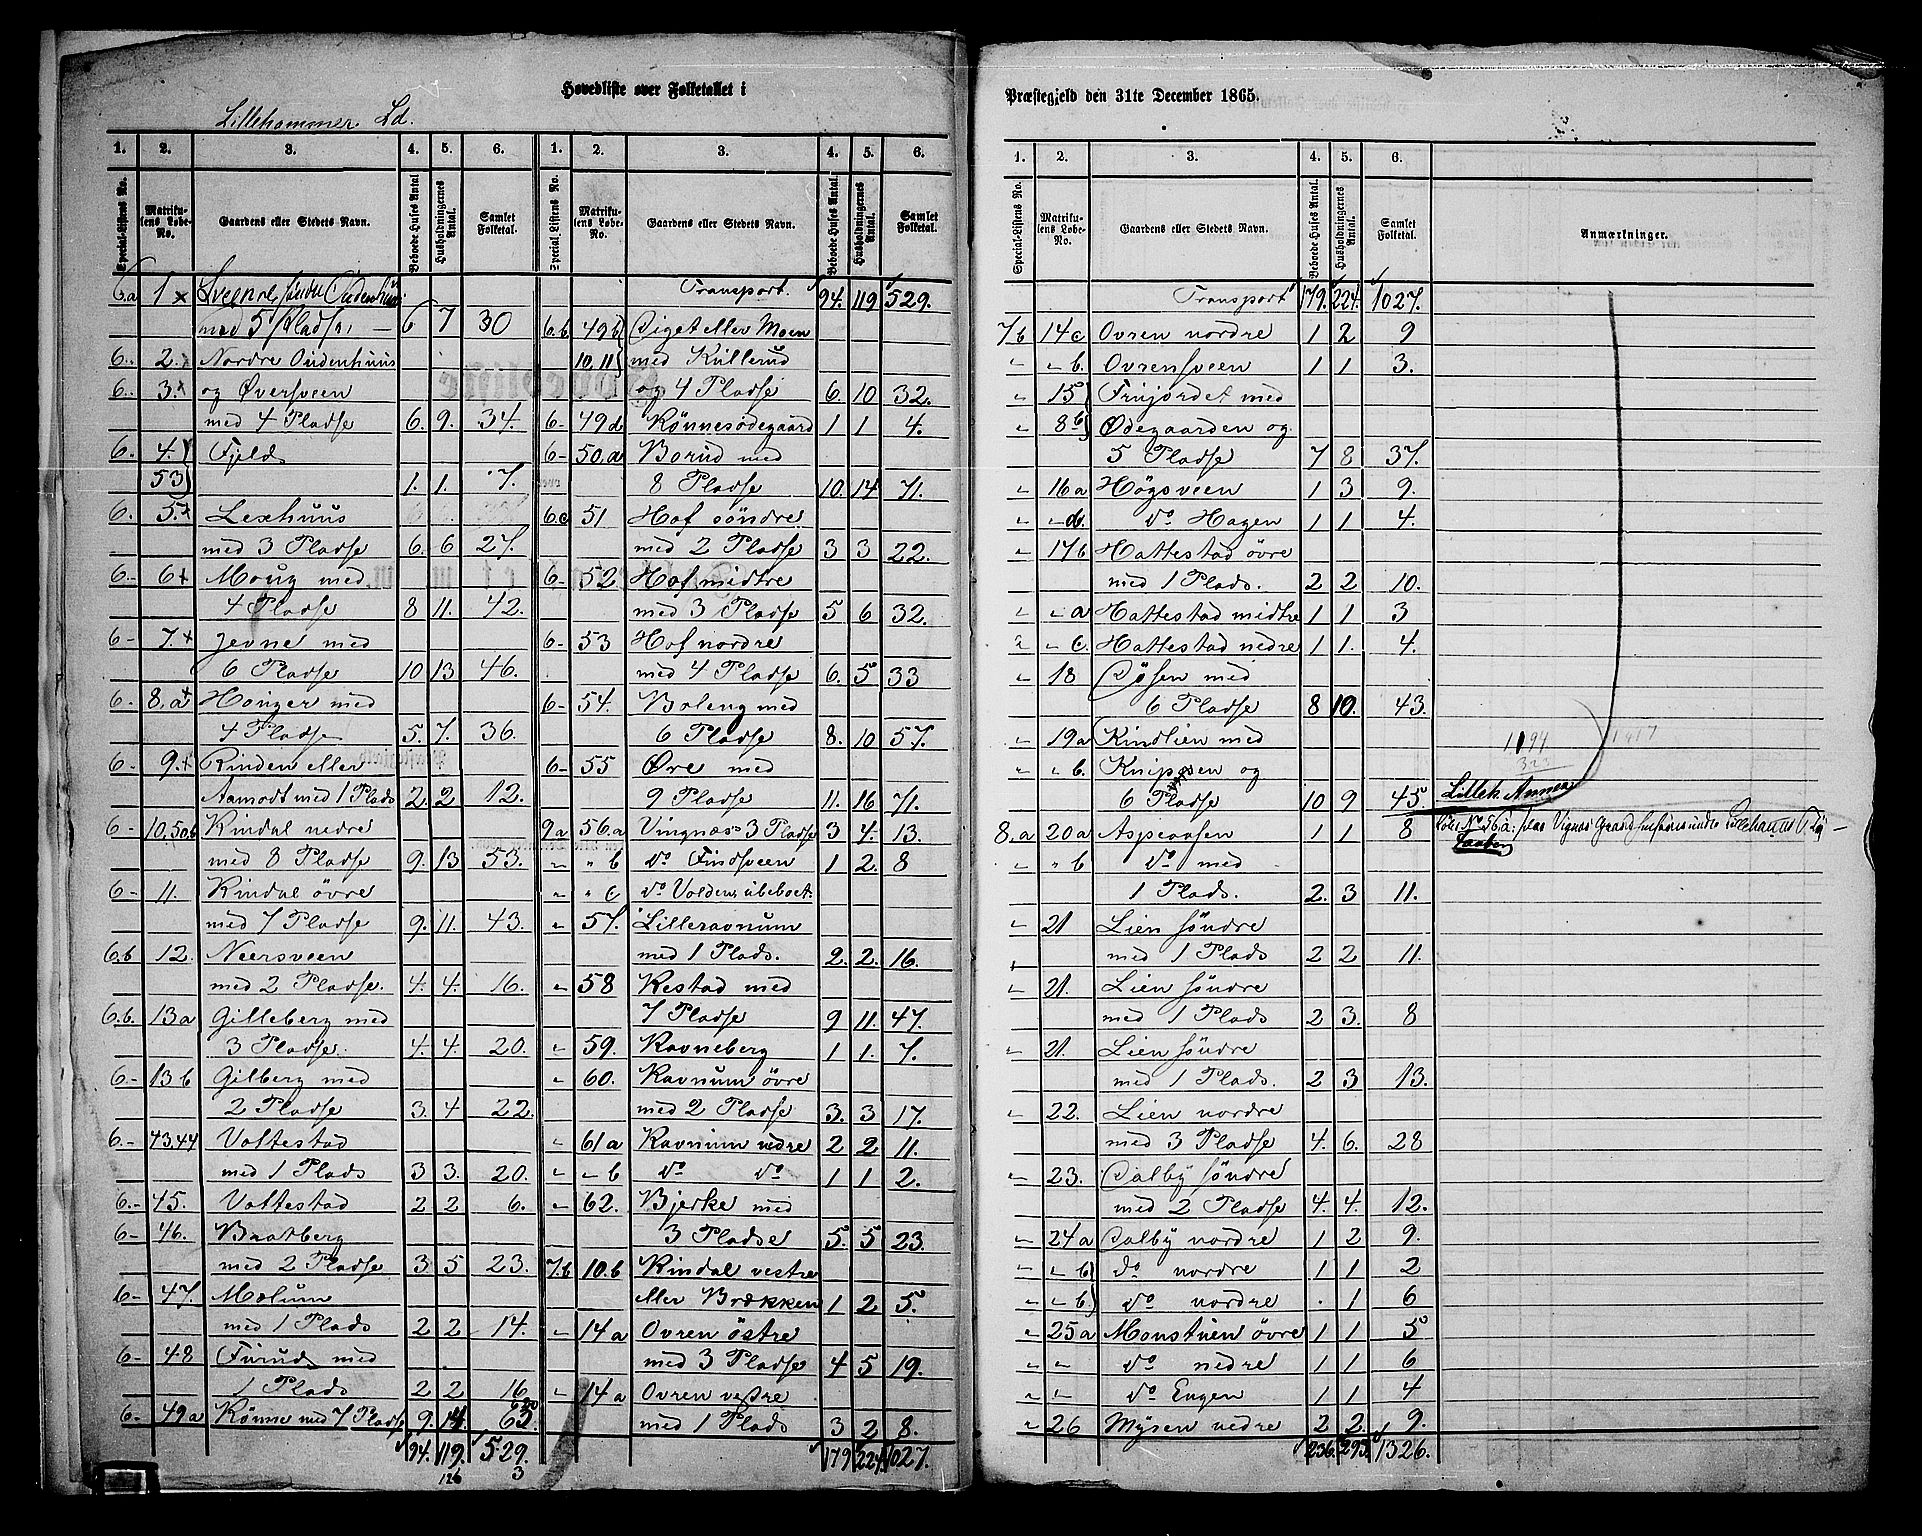 Hovedliste over Folketallet i
Lillehammer Ld.
1. 2. 3. 4. 5. 6.
Special-Listens No. Matrikulens Løbe-No. Gaardens eller Stedets Navn. Beboede Huses Antal Husholdningernes Antal. Samlet Folketal.
6.a 1 x Sveen el. søndre Oudenhuus
med 5 Pladse, — 6 7 30
6.. 2. Nordre Oudenhuus
6.. 3.x og Øversveen
med 4 Pladse 6. 9. 34.
6. 4. Fjeld
53 1. 1. 7.
6. 5.x Lexhuus
med 3 Pladse 6. 6 27.
6.- 6x Moug med
4 Pladse 8 11. 42.
6- 7.x Jevne med
6 Pladse 10 13 46.
6- 8.a x Honger med
4 Pladse 5. 7. 36.
6- 9.x Rinden eller
Aamodt med 1 Plads 2. 2 12.
6- 10,50,b Rindal nedre
med 8 Pladse 9. 13 53.
6- 11. Rindal övre
med 7 Pladse 9. 11. 43.
6.b 12. Neersveen
med 2 Pladse. 4. 4. 16.
6.b. 13a Gilleberg med
3 Pladse. 4. 4. 20.
6- 13b Gilberg med
2 Pladse 3. 4 22.
6.- 43.44 Voltestad
med 1 Plads 3 3. 20.
6.- 45. Voltestad 2 2 6.
6- 46. Baatberg
med 2 Pladse 3 5 23.
6- 47. Mælum
med 1 Plads 2 2 14.
6- 48 Furuds med
1 Plads 2 2 16
6- 49a Rönne med 7 Pladse 9. 14. 63.
94. 119. 529.
126 3
1. 2. 3. 4. 5. 6.
Special Listens No. Matrikulens Løbe-No. Gaardens eller Stedets Navn. Beboede Huses Antal. Husholdningernes Antal. Samlet Folketal.
Transport. 94. 119 529.
6.b 49b Diget eller Moen
10,11 med Kullerud
og 4 Pladse 6. 10 32.
6- 49d Rönnesödegaard 1 1 4.
6- 50,a Borud med
8 Pladse 10. 14 71.
6.c 51 Hof söndre
med 2 Pladse 3 3 22.
6- 52 Hof midtre
med 3 Pladse 5 6 32.
6- 53 Hof nordre
med 4 Pladse 6. 5 33
6- 54. Boleng med
6 Pladse 8. 10 57.
6- 55 Øre med
9 Pladse 11. 16 71.
9a 56.a Vingnæs 3 Pladse 3 4. 13.
" " b do Findsveen 1 2 8
" " c do Volden, übeboet.
" 57. Lilleravnum
med 1 Plads. 2. 2. 16.
" 58 Restad med
7 Pladse 9 11. 47.
" 59. Ravneberg 1 1. 7.
" 60. Ravnum övre
med 2 Pladse 3. 3 17.
" 61a Ravnum nedre 2 2 11.
" " b do do 1 1 2.
" 62. Bjerke med
3 Pladse 5. 5 23.
7.b 10.b Rindal vestre
eller Brækken 1 2 5.
" 14a Ovren östre
med 3 Pladse 4 5 19.
" 14a Ovren vestre
med 1 Plads 3 2 8.
179 224. 1027.
Præstegjeld den 31te December 1865.
1. 2. 3. 4. 5. 6.
Special-Listens No. Matrikulens Løbe-No. Gaardens eller Stedets Navn. Beboede Huses Antal Husholdningernes Antal. Samlet Folketal. Anmærkninger.
Transport 179. 224. 1027.
7.b 14c Ovren nordre 1 2 9
" " b. Ovrensveen 1 1 3.
" 15 Frujordet med
" 8b Ødegaarden og
5 Pladse 7 8 37.
" 16a Högsveen 1 3 9.
" " b. do Hagen 1 1 4.
" 17b Hattestad övre
med 1 Plads. 2 2 10.
" " a Hattestad midtre 1 1 3
" " c. Hattestad nedre 1 1. 4.
" 18 Dösen med
6 Pladse 8 10. 43.
" 19a Rindlien med
" " b. Knipeen og
6 Pladse 10 9 45
1194
323
1417
Lilleh. Annex
8.a 20a Aspeaasen 1 1 8
" " b do med
1 Plads. 2. 3 11.
" 21 Lien söndre
med 1 Plads 2 2 11.
" 21. Lien söndre
med 1 Plads 2 3. 8
" 21. Lien söndre
med 1 Plads. 2 3 13.
" 22. Lien nordre
med 3 Pladse 4. 6. 28
" 23. Dalby söndre
med 2 Pladse 4. 4. 12.
" 24a Dalby nordre 1 2 9.
" " b do nordre 1 1 2
" " b. do nordre . 1 6
" 25a Monstuen övre 1 1 5
" " do nedre 1 1 6
" " do Engen 1 1 4
" 26 Mysen nedre 2 2. 9.
236. 293. 1326.